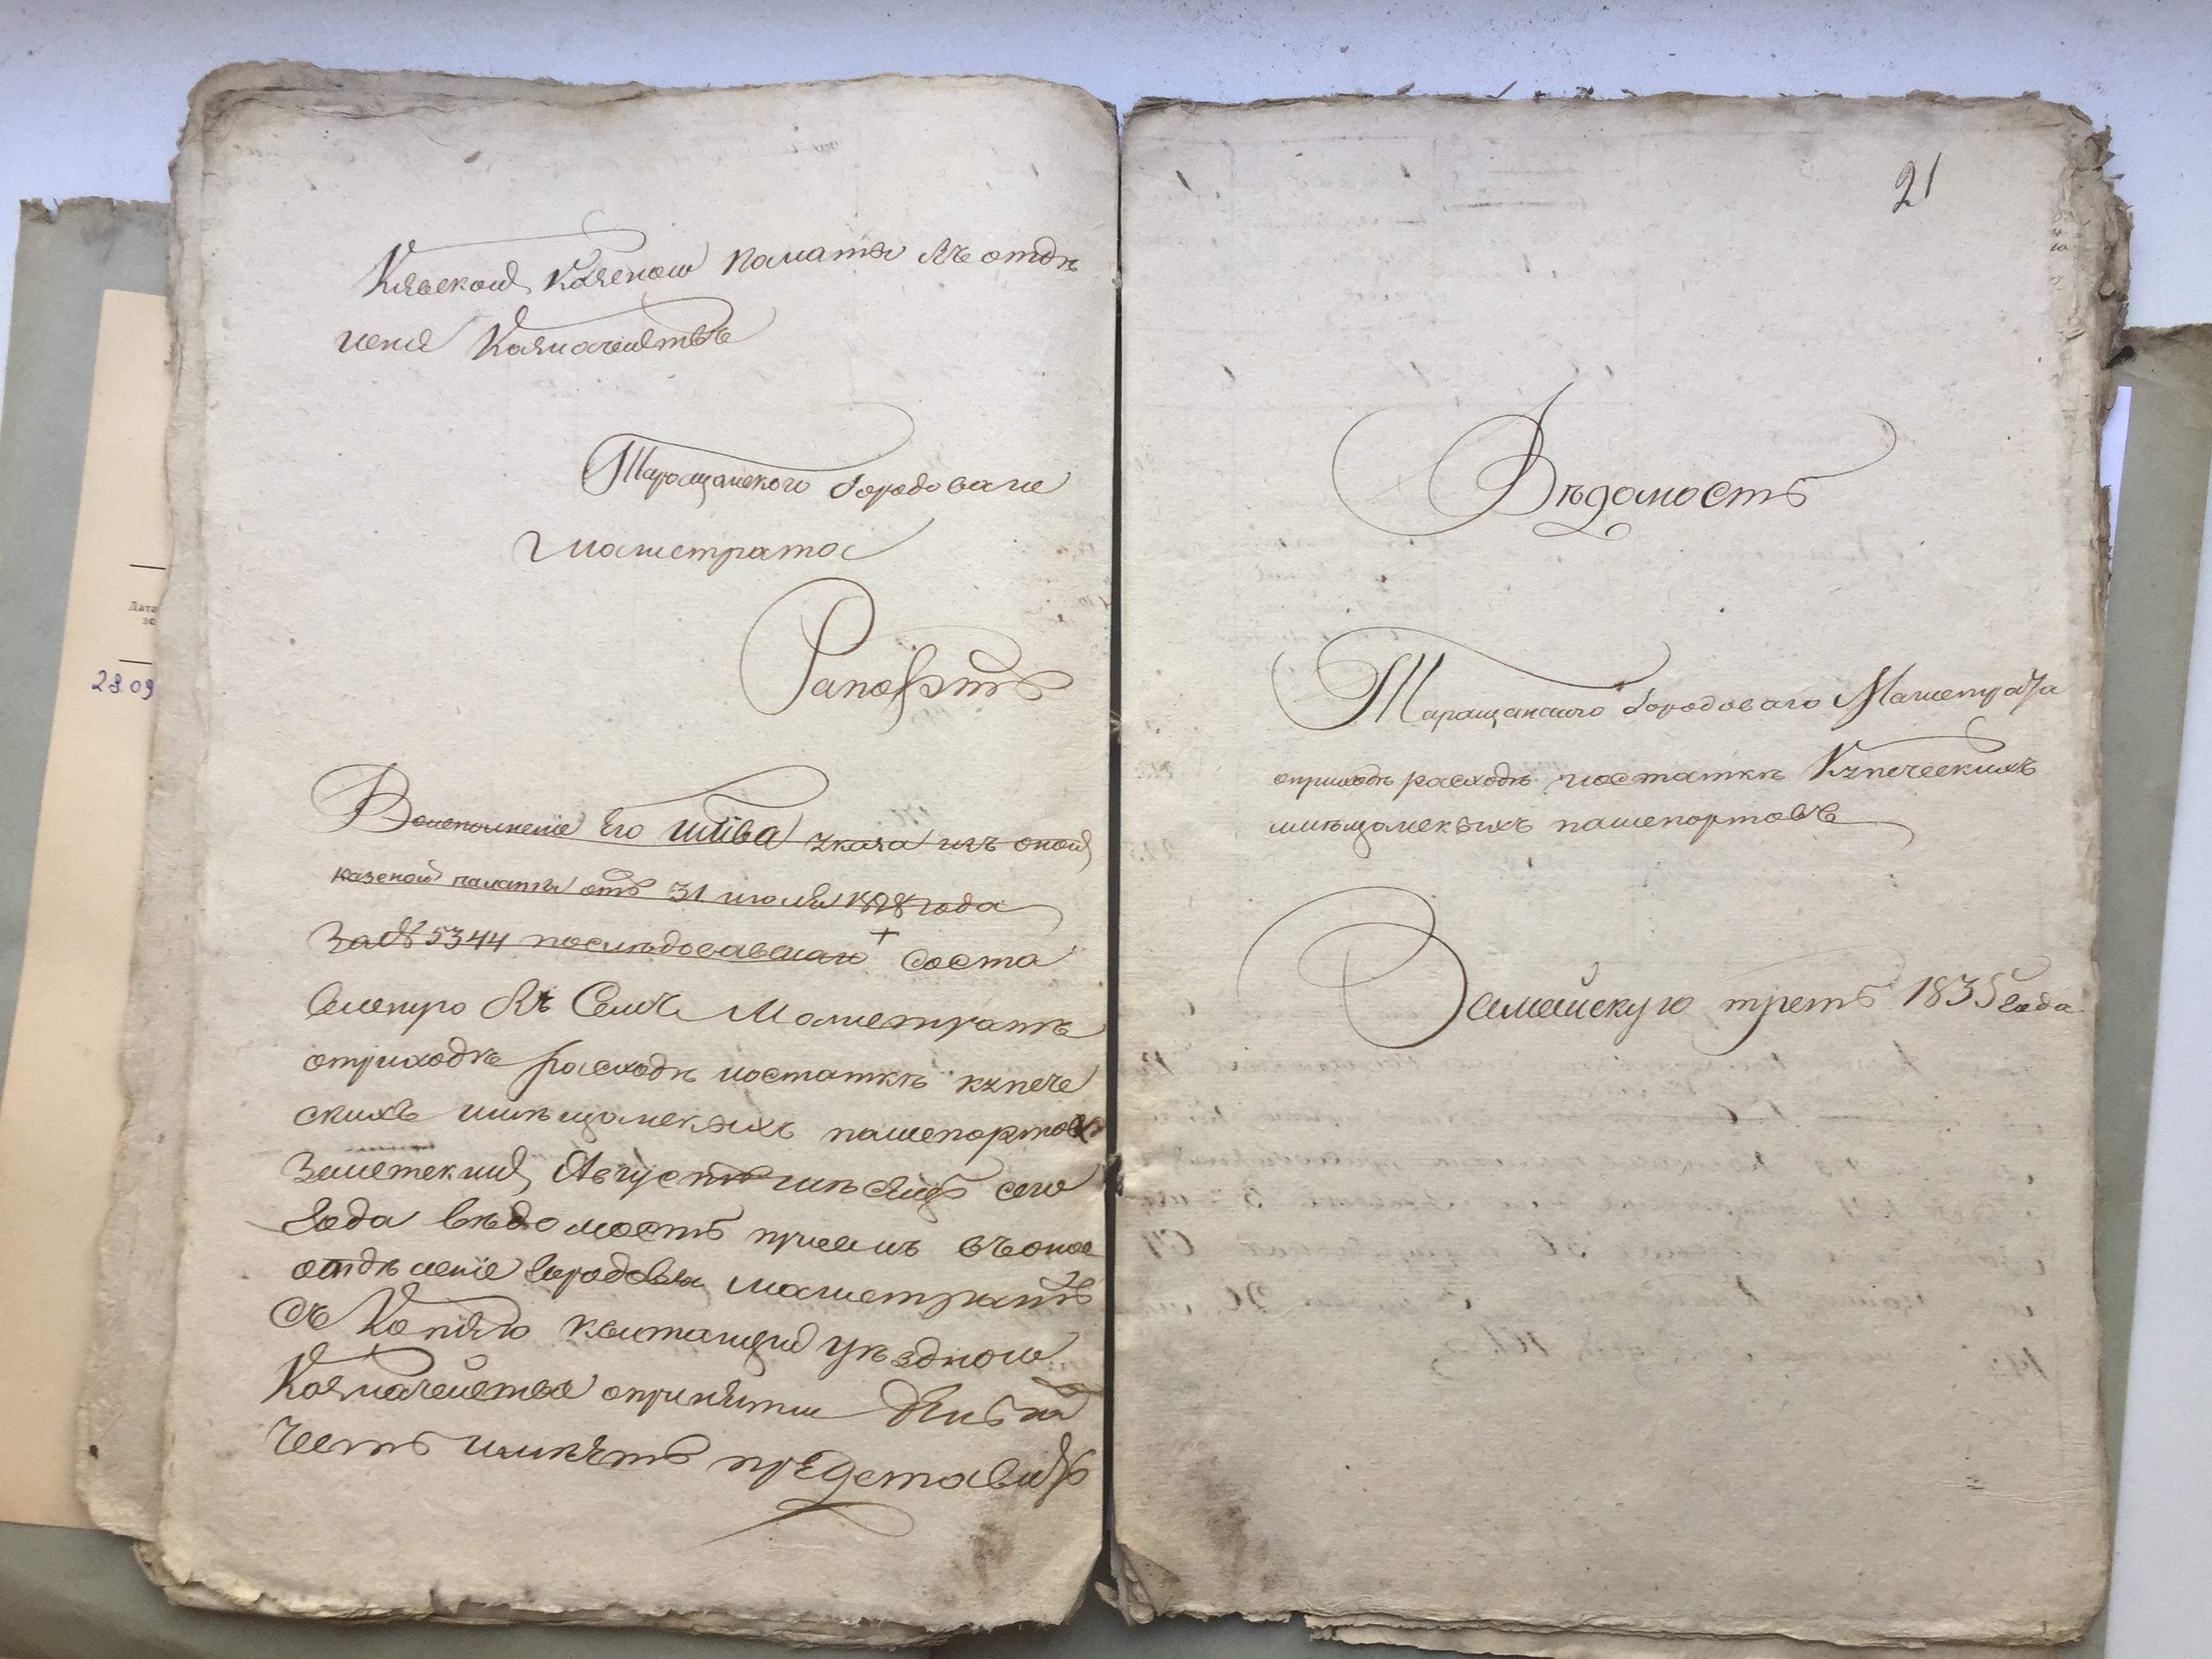 Киевской Казеной палаты въ отдѣ
ленія Казначействъ
Таращанского Городоваго
Магистрата
Рапортъ
Воисполненіе Его ИМПВА указа изъ оной
казеной палаты отъ 31 июля 1828 года
За № 5344 послѣдовавшаго + Соста
въ Семъ Магистратѣ
оприходѣ расходѣ иостаткѣ купече
скихъ имѣщанскихъ пашепортовъ
Заистекший Августъ мѣсяцъ сего
Года вѣдомость приемъ въоное
отдѣленіе Городовый магистратъ
Съ Копіею квитанціи уѣздного
Казначейства опринятіи денегъ
Честь имѣетъ представить
21
Вѣдомость
Таращанского Городоваго Магистрата
оприходѣ расходѣ иостаткѣ Купеческихъ
имѣщанскихъ пашепортовъ
Замайскую треть 1835 года
Дата
28.09